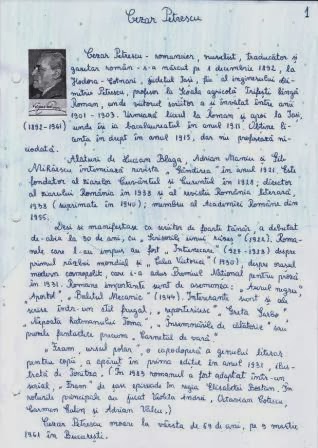 Cezar Petrescu
1
Cezar Petrescu - romancier, nuvelist, traducător și
gazetar român - s-a născut pe 1 decembrie 1892, la
Hodora - Cotnari, județul Iași, fiu al inginerului Di-
mitrie Petrescu, profesor la Școala agricolă Trifești lângă
Roman, unde viitorul scriitor a și învățat între anii
1901 - 1903. Urmează liceul la Roman și apoi la Iași,
(1892-1961) unde își ia bacalaureatul în anul 1911. Obține li-
cența în drept în anul 1915, dar nu profesează ni-
ciodată.
Alături de Lucian Blaga, Adrian Maniu și Gib
Mihăescu întemeiază revista "Gândirea" în anul 1921. Este
fondator al ziarelor Cuvântul și Curentul în 1928; director
al ziarului România în 1938 și al revistei România literară,
1938 (suprimate în 1940); membru al Academiei Române din
1955.
Deși se manifestase ca scriitor de foarte tânăr, a debutat
de-abia la 30 de ani, cu "Scrisorile unui răzeș" (1922). Roma-
nele care l-au impus au fost "Întunecare" (1927-1928) despre
primul război mondial și "Calea Victoriei" (1930) despre orașul
modern cosmopolit, care i-a adus Premiul Național pentru proză
în 1931. Romane importante sunt de asemenea: "Aurul negru"
"Apostol", "Baletul Mecanic" (1944). Interesante sunt și alte
scrise într-un stil frugal, reportericesc "Greta Garbo"
"Nepoata hatmanului Toma" "Însemnările de călătorie" sau
proxele fantastice precum "Carnetul de vară".
"Fram, ursul polar", o capodoperă a genului literar
pentru copii, a apărut în prima ediție în anul 1931, ilus-
trată de (În 1983 romanul a fost adaptat într-un
serial, "Fram" de șase episoade în regia Elisabetei Bostan. În
rolurile principale au jucat Violeta Andrei, Octavian Cotescu,
Carmen Galin și Adrian Vâlcu.)
Cezar Petrescu moare la vârsta de 69 de ani, pe 9 martie
1961 în București.